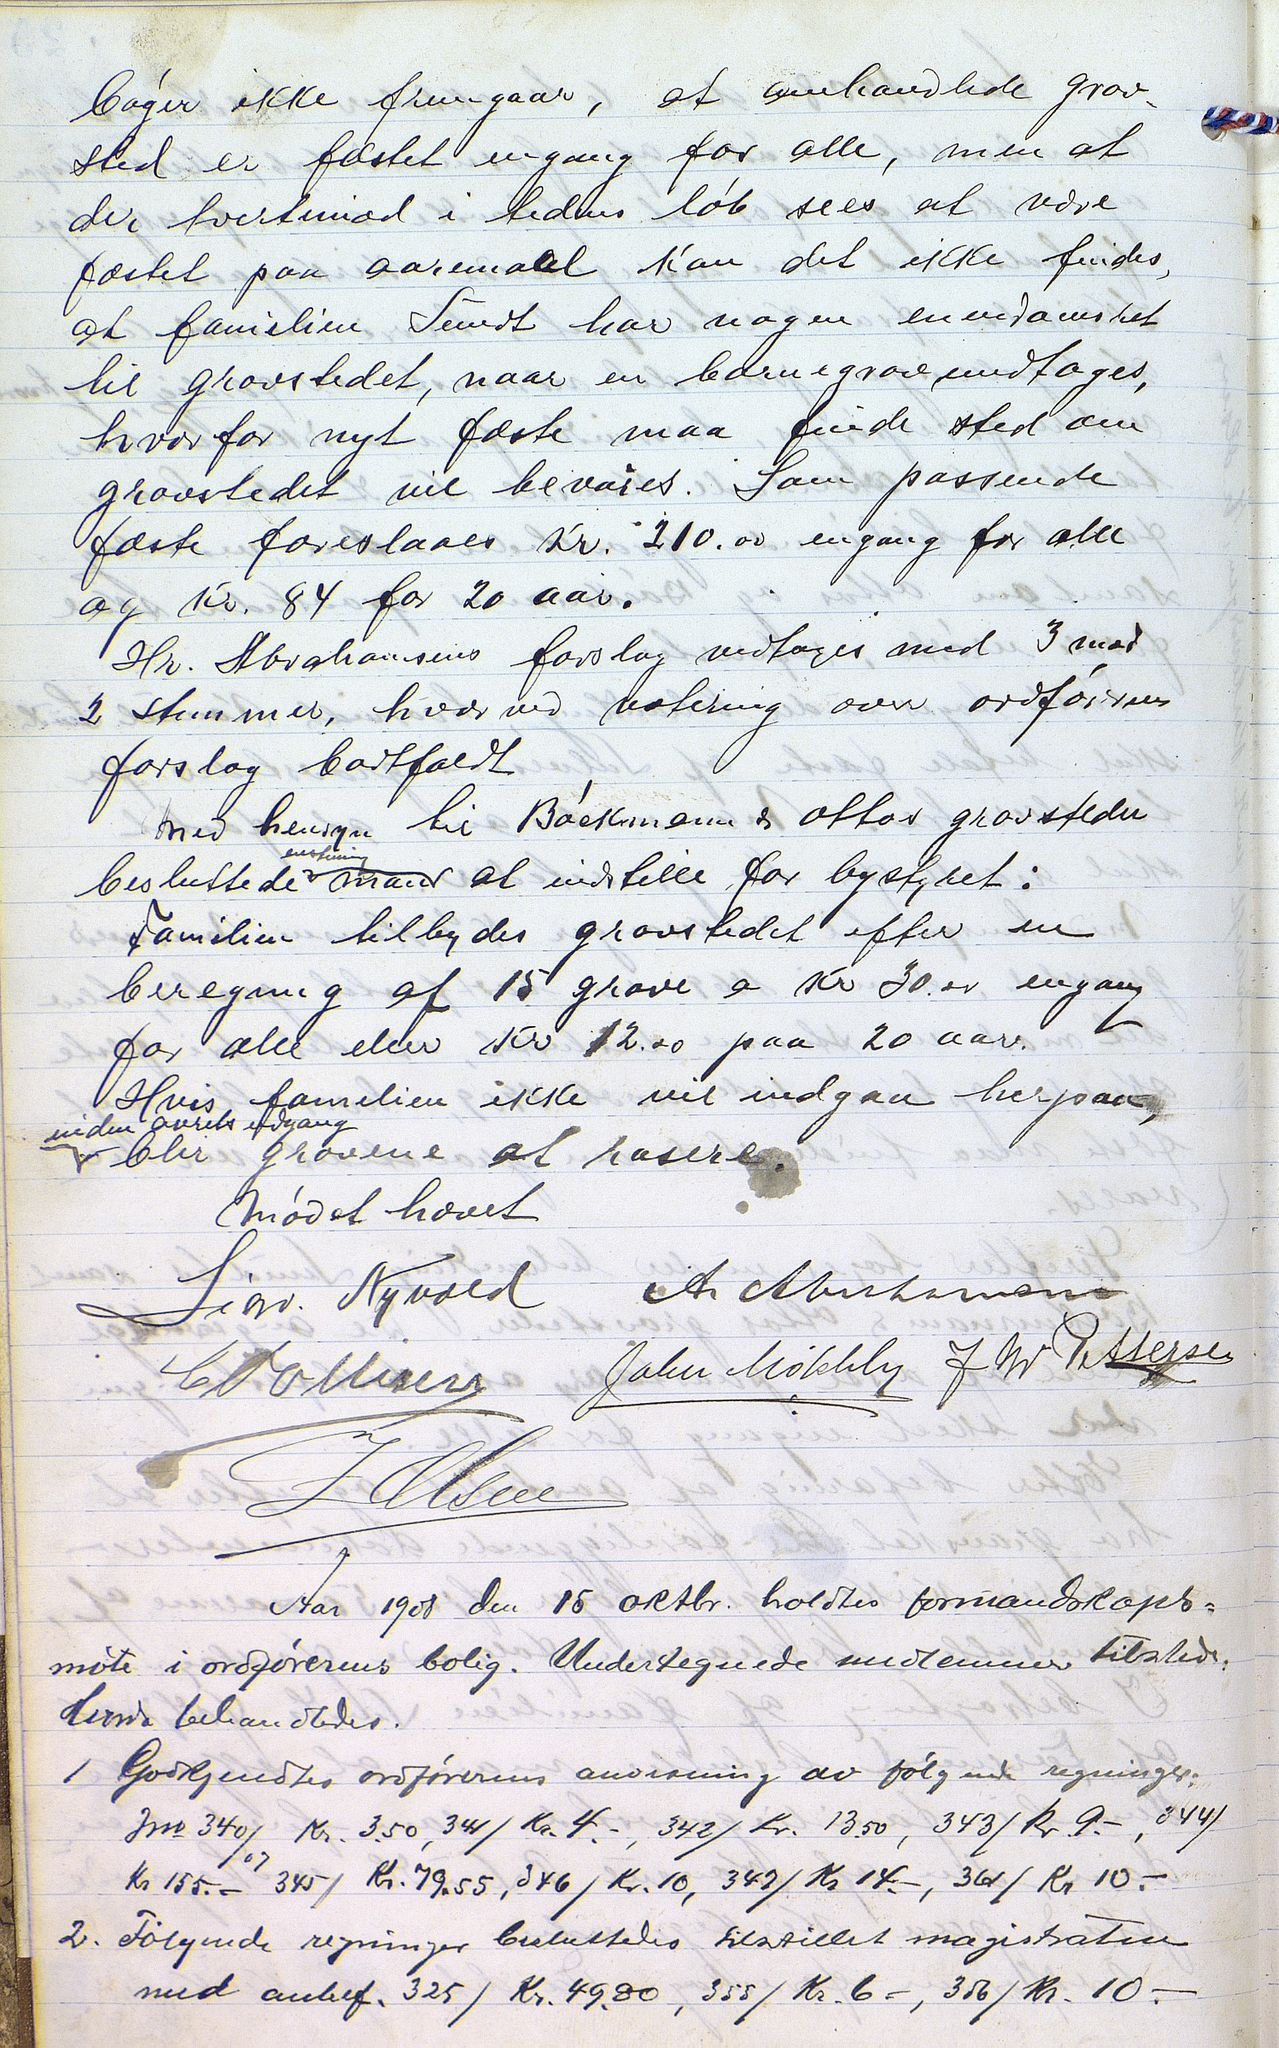 bøger ikke fremgaar, at omhandlede grav-
sted er fæstet engang for alle, men at
der tvertimod i tidens løb sees at være
fæstet paa aaremaal kan det ikke findes,
at familien Tendt har nogen eiendomsret
til gravstedet, naar en barnegrav undtages,
hvorfor nyt fæste maa finde sted om
gravstedet vil bevares. Som passende
fæste foreslaaes Kr. 210.00 engang for alle
og Kr. 84 for 20 aar.
Hr. Abrahamsens forslag vedtoges med 3 mod
2 stemmer, hvorved votering over ordførerens
forslag bortfaldt
Med hensyn til Bøckmann & Ottos gravsteder
besluttedes enstemmig at indstille for bystyret:
Familien tilbydes gravstedet efter en
beregning af 15 grave a Kr 30.00 engang
for alle eller Kr 12.00 paa 20 aar.
Hvis familien ikke vil indgaa herpaa,
inden aarets udgang
blir gravene at rasere.
Mødet hævet
Sigv. Nyvold A. Abrahamsen
John Møkleby J W Pettersen
J Olsen
Aar 1908 den 15 oktbr. holdtes formandskaps=
møte i ordførerens bolig. Undertegnede medlemmer tilstede.
behandledes.
1 Godkjendtes ordførerens anvisning av følgende regninger:
Jno 340/07 Kr. 3.50, 341/ Kr. 4.-, 342/ Kr. 13.50, 343/ Kr 9.-, 344/
Kr 155.- 345/ Kr. 79.55, 346/ Kr. 10, 349/ Kr 14.-, 361/ Kr 10.-
2. Følgende regninger besluttedes tilstillet magistraten
med anbef. 325/ Kr. 49.80, 355/ Kr. 6-, 356/ Kr. 10.-